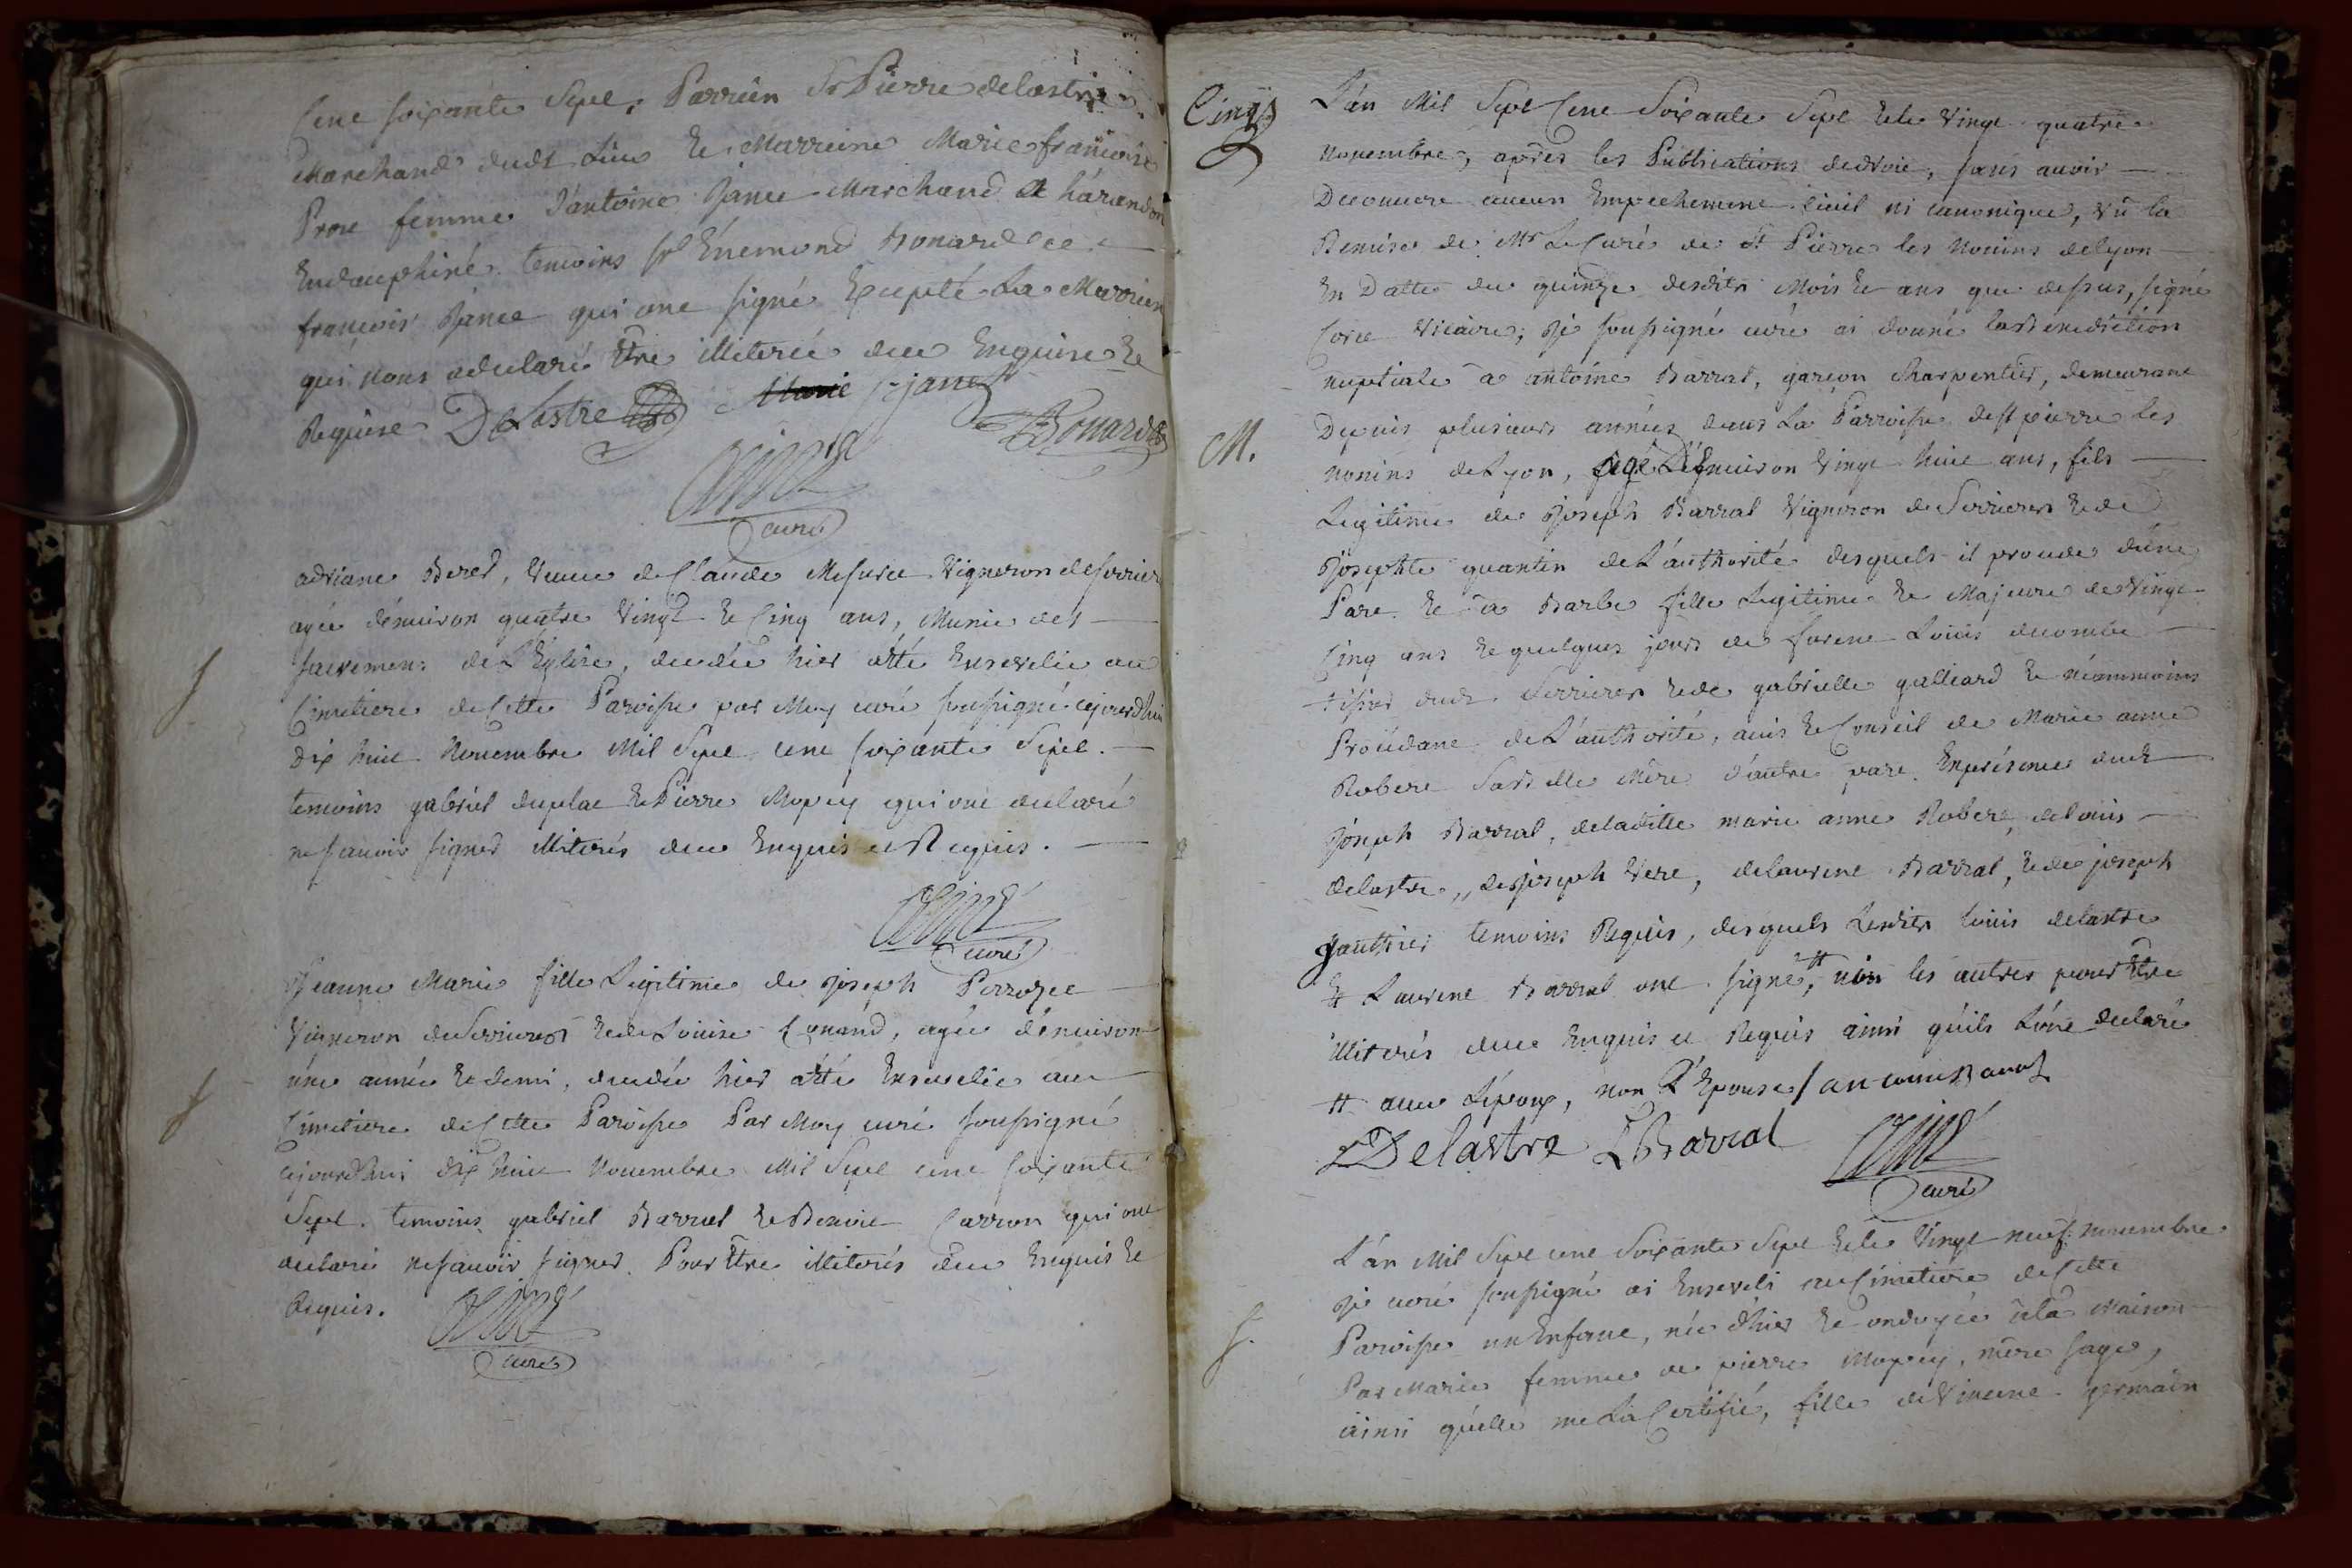 Cent soixante Sept, Parrein Sr Pierre delastre
Marchand dudt Lieu et Marreine Marie françoise
femme d'antoine Jance Marchand a
Endauphiné. temoins Sr Enemond Bonard et
françois Jance qui ont signé Excepté La Marreine
qui nous adeclaré Etre illiterée due Enquise et
Requise DeLastre Marie f jance
Bonard
curé
adriane Beret, veuve deClaude Vigneron deserrier
agée d'environ quatre Vingt et Cinq ans, Munie des
sacremens de L'Eglise, decedée hier aété Ensevelie au
Cimetiere deCette Paroisse par Moy curé soussigné cejourdhui
dix huit Novembre Mil Sept cent soixante Sept.
temoins gabriel duplat et Pierre Mopey qui ont declaré
ne savoir signer illiterés due Enquis et Requis.
curé
f
Jeanne Marie fille Legitime de Joseph
Vigneron deSerrieres et de Louise agée d'environ
une année et demi, decedée hier aété Ensevelie au
f
Cimetiere deCette Paroisse Par Moy curé soussigné
cejourdhui dix huit Novembre Mil Sept cent soixante
Sept. temoins gabriel Barral et Benoit Carron qui ont
declaré ne savoir signer Pour Etre illiterés due Enquis et
Requis.
curé
Cinq
L'an Mil Sept Cent Soixante Sept et le Vingt quatre
Novembre, après les Publications dedroit, sans avoir
Decouvert aucun Empechement Civil ni canonique, vû la
Remise de Mr Le Curé de St Pierre les Nonins delyon
En Datte du quinze desdits Mois et ans que dessus, signé
vicaire; Je soussigné curé ai donné la Benediction
nuptiale a antoine Barral, garçon charpentier, demeurant
M.
Depuis plusieurs années dans La Parroisse de St pierre les
nonins deLyon, agé d'Environ Vingt huit ans, fils
Legitime de Joseph Barral Vigneron deSerrieres et de
Josephte quantin deL'authorité desquels il procede d'une
Part et a Barbe fille Legitime et Majeure de Vingt
Cinq ans et quelques jours de furent Louis decombe
tissier dudt Serrieres et de gabrielle galliard et néammoins
Procédant deL'authorité, avis et Conseil de Marie anne
Robert sa Belle Mère d'autre part. Enprésence dudt
Joseph Barral, deladitte marie anne Robert, delouis
delastre, de joseph Vere, delaurent Barral, et de joseph
gauthier temoins Requis, desquels Lesdits Louis delastre
et Laurent Barral ont signé, # non les autres pour Etre
illiterés due Enquis et Requis ainsi qu'ils L'ont declaré
# avec L'époux, non L'Epouse / antoine Barral
L Delastre L Barral
curé
L'an Mil Sept cent Soixante Sept et le Vingt neuf novembre
Je curé soussigné ai Enseveli au Cimetiere deCette
f.
Paroisse un Enfant, née d'hier et ondoyée ala Maison
Par Marie femme de pierre Mopey, mere sage,
ainsi qu'elle me La Certifié, fille de Vincent germain